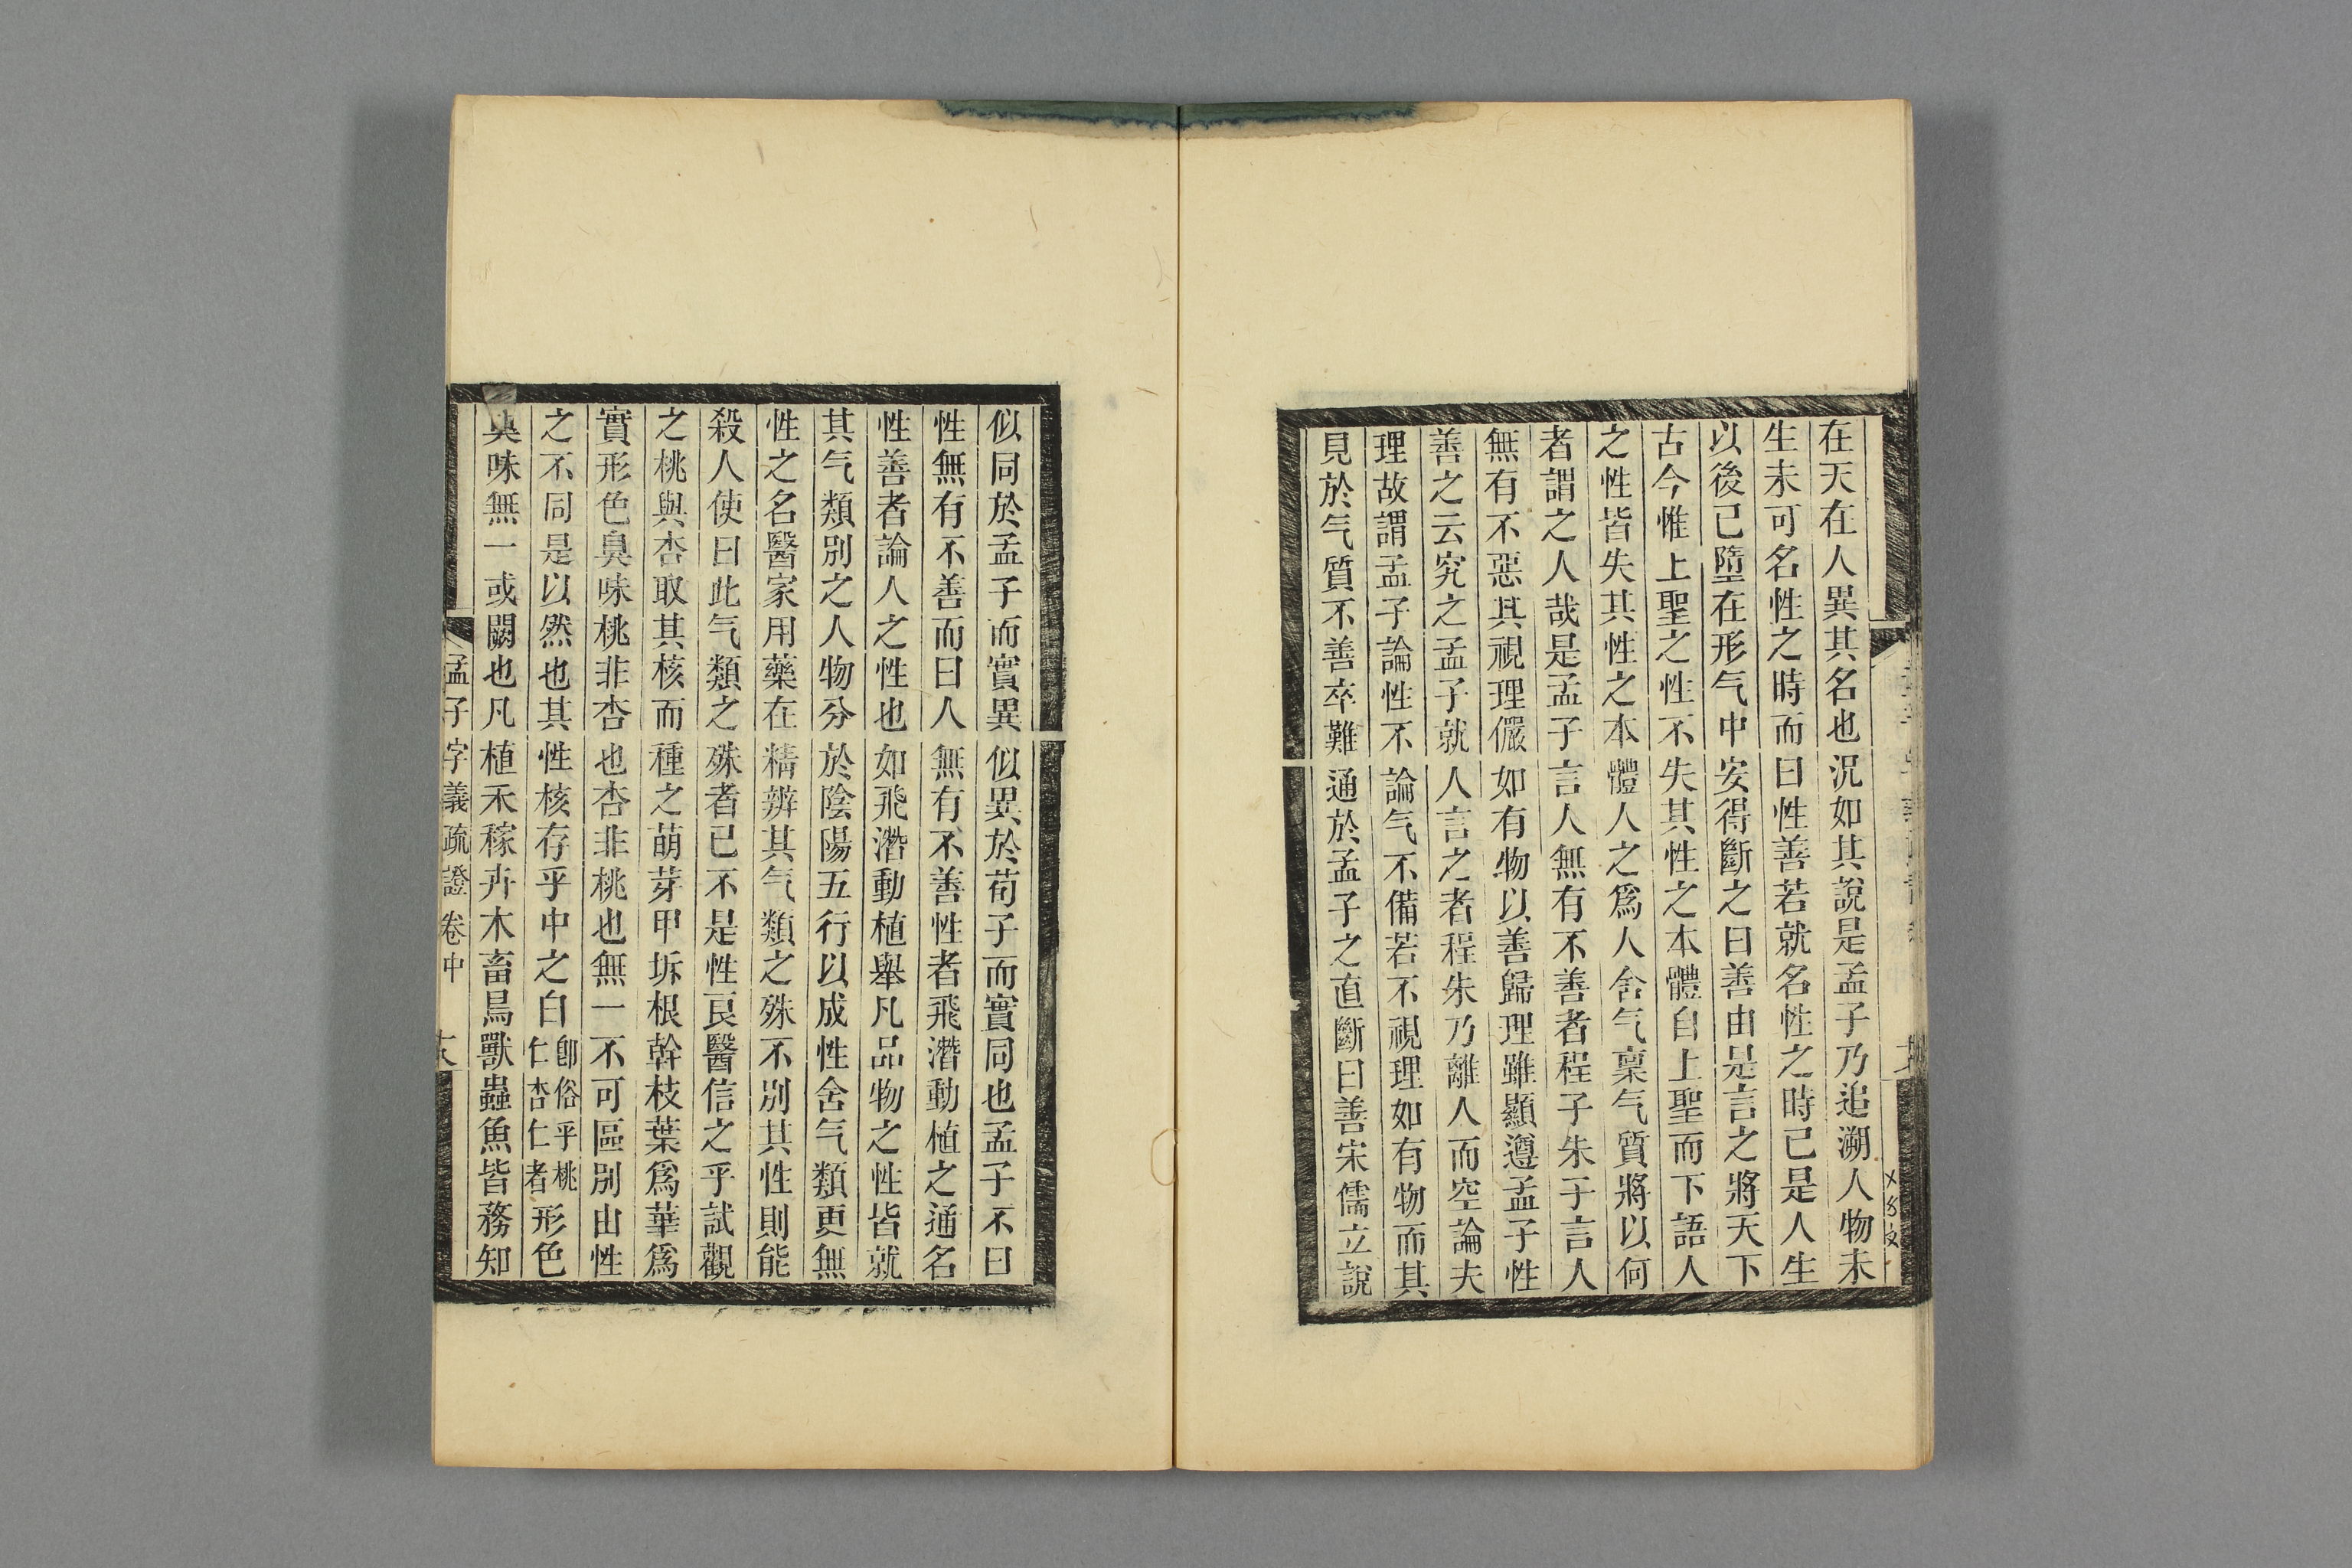 在天在人異其名也況如其說是孟子乃追溯人物未
生未可名性之時而曰性善若就名性之時已是人生
以後已墮在形气中安得斷之曰善由是言之將天下
古今惟上聖之性不失其性之本體自上聖而下語人
之性皆失其性之本體人之爲人舍气稟气質將以何
者謂之人哉是孟子言人無有不善者程子朱子言人
無有不惡其視理儼如有物以善歸理雖顯遵孟子性
善之云究之孟子就人言之者程朱乃離人而空論夫
理故謂孟子論性不論气不備若不視理如有物而其
見於气質不善卒難通於孟子之直斷曰善宋儒立說
似同於孟子而實異似異於荀子而實同也孟子不曰
性無有不善而曰人無有不善性者飛潛動植之通名
性善者論人之性也如飛潛動植舉凡品物之性皆就
其气類別之人物分於陰陽五行以成性舍气類更無
性之名醫家用藥在精辨其气類之殊不別其性則能
殺人使曰此气類之殊者已不是性良醫信之乎試觀
之桃與杏取其核而種之萌芽甲坼根幹枝葉爲華爲
實形色臭味桃非杏也杏非桃也無一不可區別由性
之不同是以然也其性核存乎中之白卽俗乎桃仁杏仁者形色
臭味無一或闕也凡植禾稼卉木畜鳥獸蟲魚皆務知
孟子字義疏證 卷中 十八